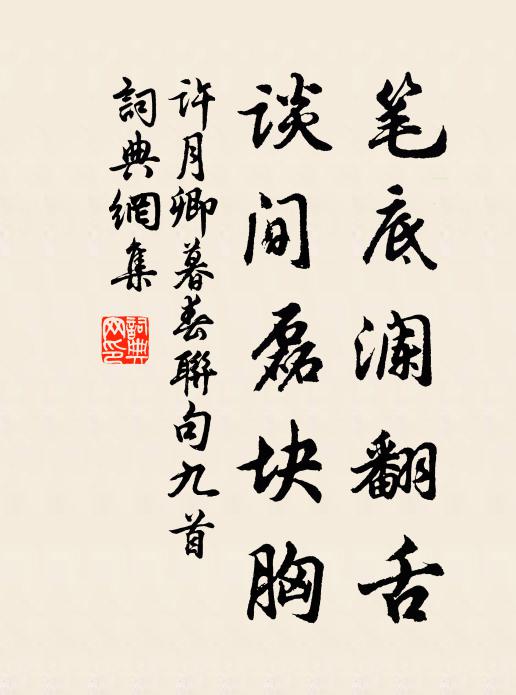 笔底澜翻舌
谈间磊块胸
许月卿暮春聯句九首
詞典網集
詞典网印